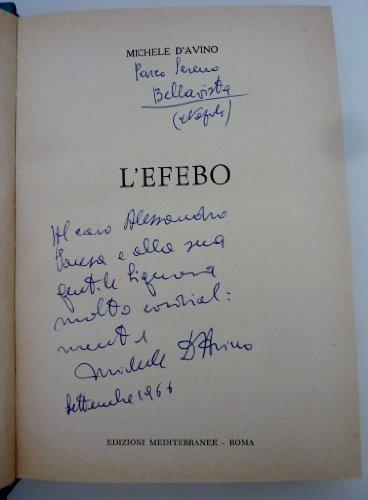 MICHELE D'AVINO
Parco Sereno
Bellavista
(Napoli)
L'EFEBO
Al caro Alessandro
e alla sua
gentile Signora
molto cordial:
mente
Michele D'Avino
Settembre 1966
EDIZIONI MEDITERRANEE - ROMA